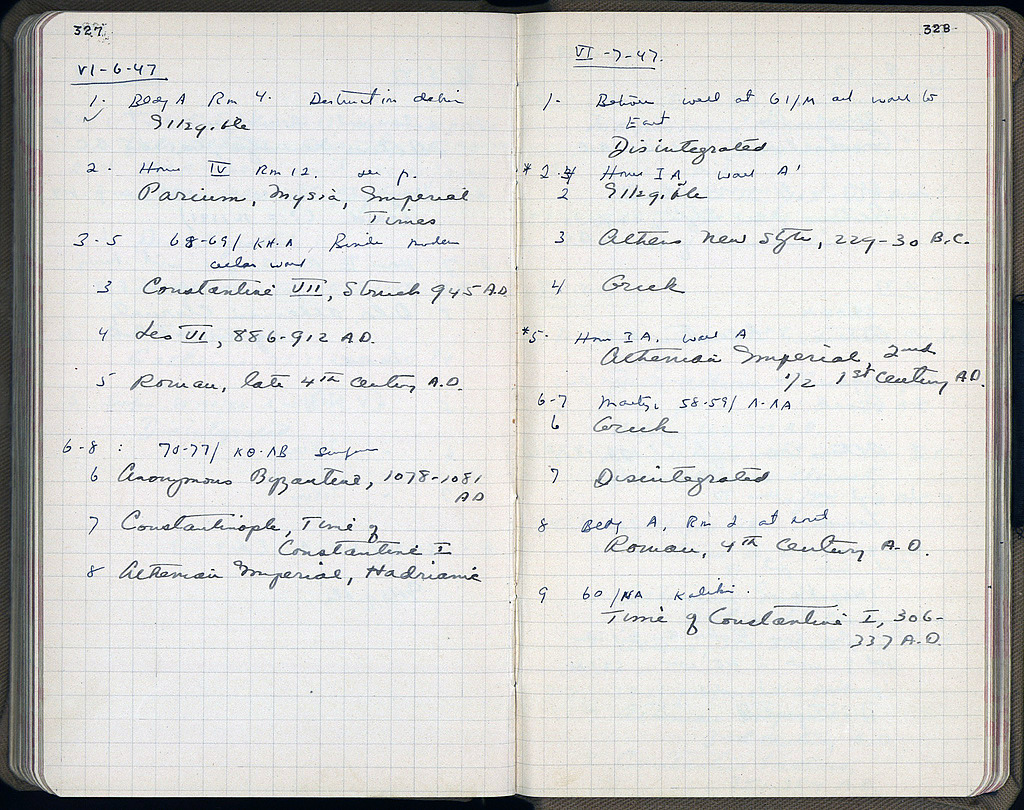 327
VI-6-47
1. Bldg A Rm 4. Destruction debris
Illegible
2. House IV Rm 12. see p.
Parium, Mysia, Imperial
Times
3-5 68-69/ KH-A Beside modern
cellar wall
3 Constantine VII, Struck 945 A.D.
4 Leo VI, 886-912 A.D.
5 Roman, late 4th Century A.D.
6-8 : 70-77/ KΘ-ΛB surface
6 Anonymous Byzantine, 1078-1081
AD
7 Constantinople, Time of
Constantine I
8 Athenian Imperial, Hadrianic
328
VI -7-47.
1. Below wall at 61/M and wall to
East
Disintegrated
*2. House I A, wall A'
2 Illegible
3 Athens New Style, 229-30 B.C.
4 Greek
*5. House I A. wall A
Athenian Imperial, 2nd
1/2 1st Century A.D.
6-7 58-59/ Λ-ΛA
6 Greek
7 Disintegrated
8 Bldg A, Rm 2 at
Roman, 4th Century A.D.
9 60/NA
Time of Constantine I, 306-
337 A.D.